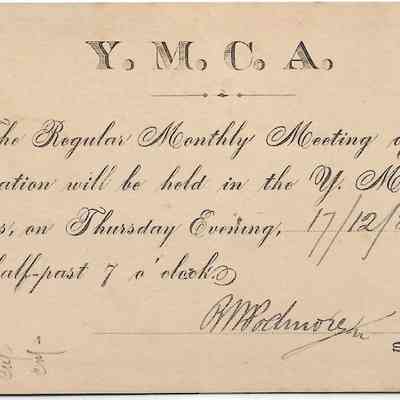 Y. M. C. A.
The Regular Monthly Meeting
ation will be held in the Y. M
s, on Thursday Evening, 17/12/
half-past 7 o'clock.